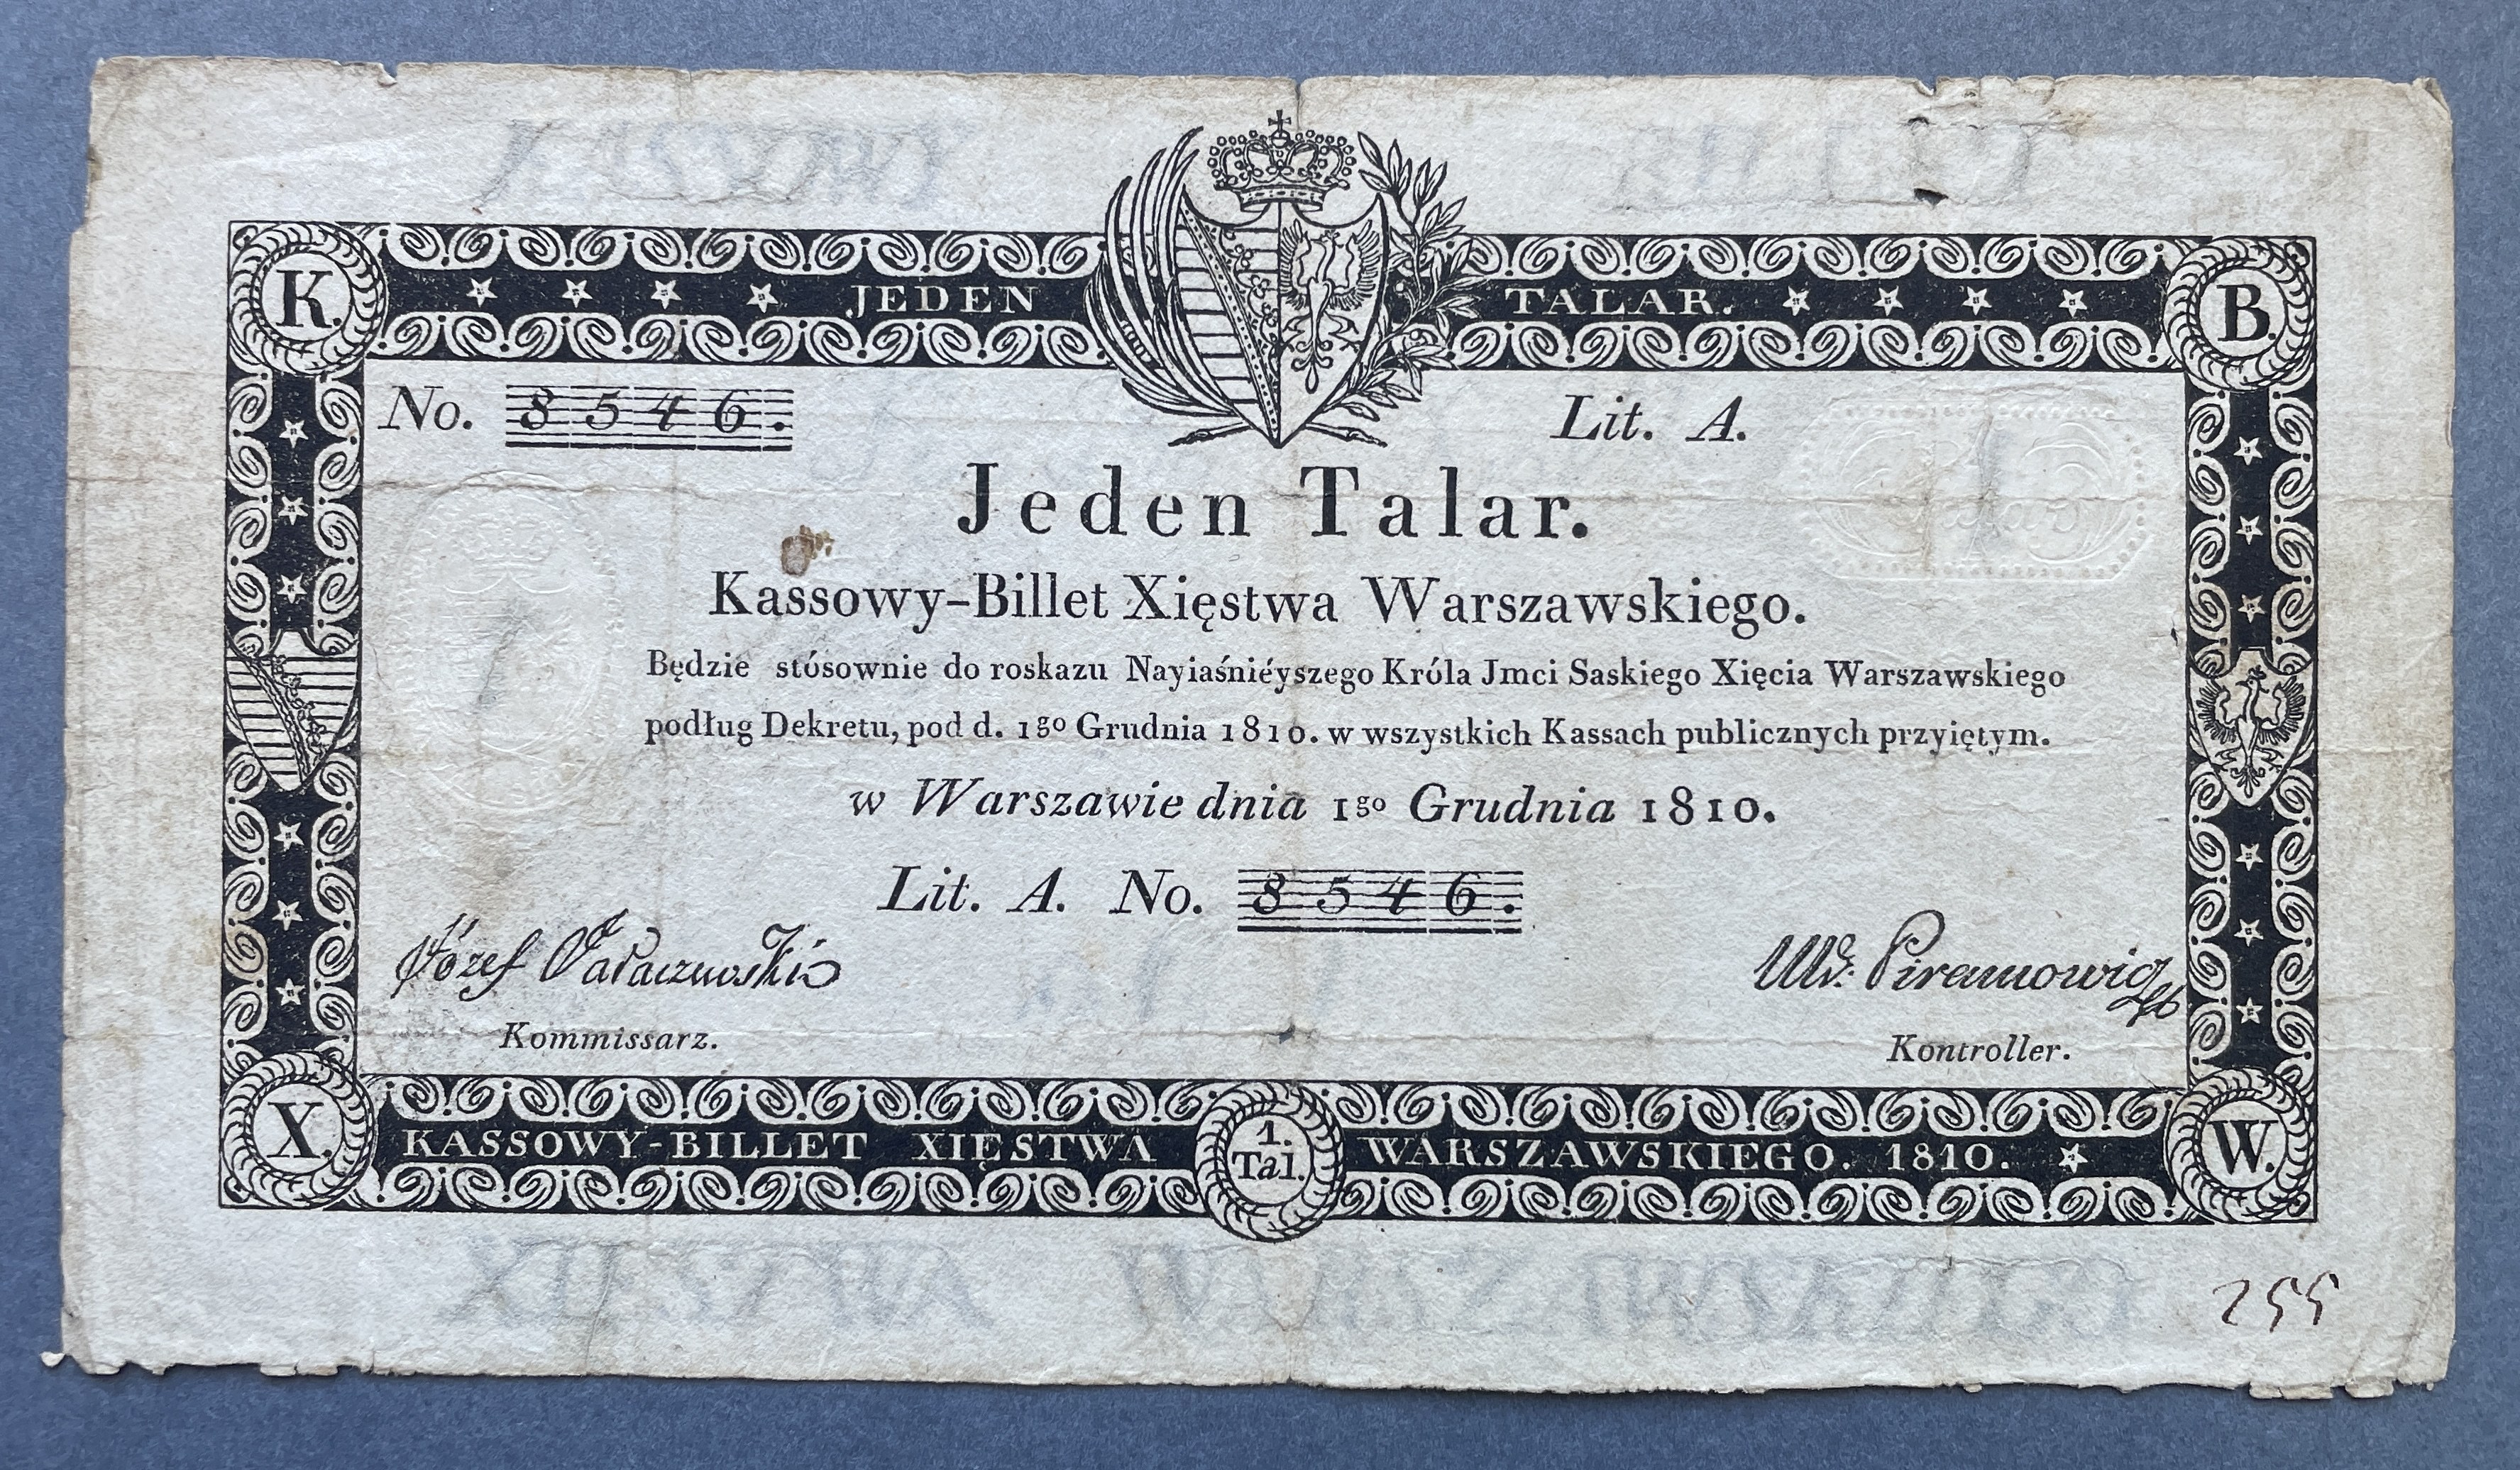 K. JEDEN TALAR. B.
No. 8546. Lit. A.
Jeden Talar.
Kassowy-Billet Xięstwa Warszawskiego.
Będzie stósownie do roskazu Nayiaśniéyszego Króla Jmci Saskiego Xięcia Warszawskiego
podług Dekretu, pod d. 1go Grudnia 1810. w wszystkich Kassach publicznych przyiętym.
w Warszawie dnia 1go Grudnia 1810.
Lit. A. No. 8546.
Józef
Kommissarz. Kontroller.
X. KASSOWY-BILLET XIĘSTWA 1. Tal. WARSZAWSKIEGO. 1810. W.